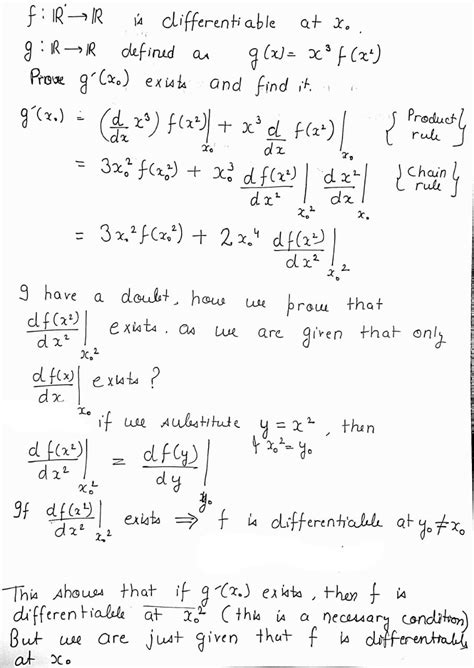 f : ℝ → ℝ is differentiable at x₀
g : ℝ → ℝ defined as g(x) = x³ f(x²)
Prove g'(x₀) exists and find it.
g'(x₀) = (d/dx x³) f(x²)|ₓ₀ + x³ d/dx f(x²)|ₓ₀ { Product rule }
= 3x₀² f(x₀²) + x₀³ df(x²)/dx²|ₓ₀² dx²/dx|ₓ₀ { Chain rule }
= 3x₀² f(x₀²) + 2x₀⁴ df(x²)/dx²|ₓ₀²
I have a doubt, how we prove that
df(x²)/dx²|ₓ₀² exists. as we are given that only
df(x)/dx|ₓ₀ exists ?
if we substitute y = x², then
& x₀² = y₀
df(x²)/dx²|ₓ₀² = df(y)/dy|y₀
If df(x²)/dx²|ₓ₀² exists ⇒ f is differentiable at y₀ ≠ x₀
This shows that if g'(x₀) exists, then f is
differentiable at x₀² (this is a necessary condition)
But we are just given that f is differentiable
at x₀